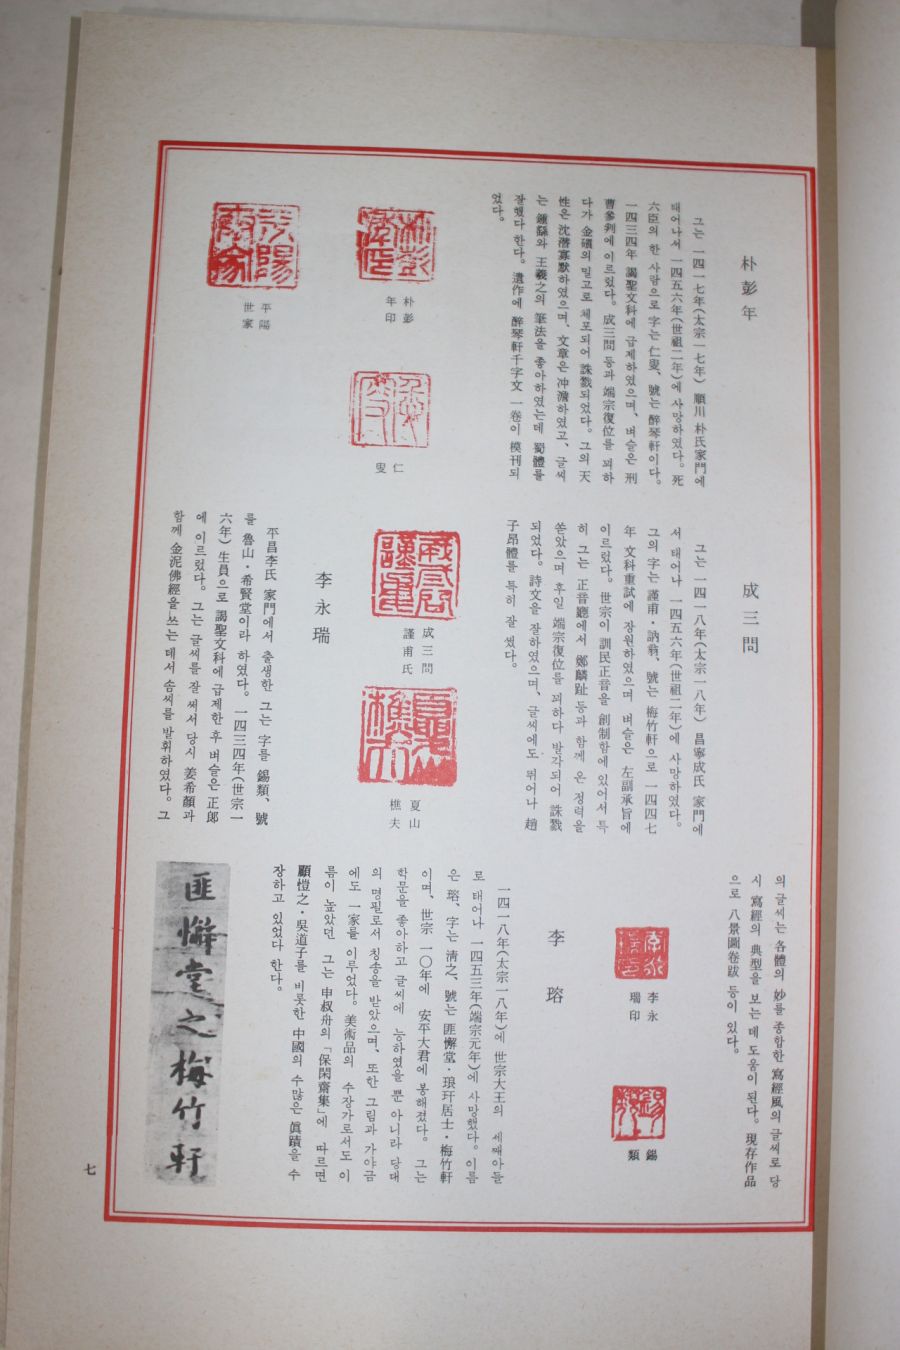 朴彭年
그는 一四一七年(太宗一七年) 順川 朴氏家門에
태어나서 一四五六年(世祖二年)에 사망하였다. 死
六臣의 한 사람으로 字는 仁叟、號는 醉琴軒이다.
一四三四年 謁聖文科에 급제하였으며、벼슬은 刑
曹參判에 이르렀다. 成三問 등과 端宗復位를 꾀하
다가 金礩의 밀고로 체포되어 誅戮되었다. 그의 天
性은 沈潛寡默하였으며、文章은 冲澹하였고、글씨
는 鍾繇와 王羲之의 筆法을 좋아하였는데 蜀體를
잘했다 한다. 遺作에 醉琴軒千字文 一卷이 模刊되
었다.
朴彭
年印
平陽
世家
仁
叟
成三問
그는 一四一八年(太宗一八年) 昌寧成氏 家門에
서 태어나 一四五六年(世祖二年)에 사망하였다.
그의 字는 謹甫・訥翁、號는 梅竹軒으로 一四四七
年 文科重試에 장원하였으며 벼슬은 左副承旨에
이르렀다. 世宗이 訓民正音을 創制함에 있어서 특
히 그는 正音廳에서 鄭麟趾 등과 함께 온 정력을
쏟았으며 후일 端宗復位를 꾀하다 발각되어 誅戮
되었다. 詩文을 잘하였으며、글씨에도 뛰어나 趙
子昂體를 특히 잘 썼다.
成三問
謹甫氏
夏山
樵夫
李永瑞
平昌李氏 家門에서 출생한 그는 字를 錫類、號
를 魯山・希賢堂이라 하였다. 一四三四年(世宗一
六年) 生員으로 謁聖文科에 급제한 후 벼슬은 正郎
에 이르렀다. 그는 글씨를 잘 써서 당시 姜希顔과
함께 金泥佛經을 쓰는 데서 솜씨를 발휘하였다. 그
의 글씨는 各體의 妙를 종합한 寫經風의 글씨로 당
시 寫經의 典型을 보는 데 도움이 된다. 現存作品
으로 八景圖卷跋 등이 있다.
李永
瑞印
錫
類
李瑢
一四一八年(太宗一八年)에 世宗大王의 세째아들
로 태어나 一四五三年(端宗元年)에 사망했다. 이름
은 瑢、字는 淸之、號는 匪懈堂・琅玕居士・梅竹軒
이며、世宗 一〇年에 安平大君에 봉해졌다. 그는
학문을 좋아하고 글씨에 능하였을 뿐 아니라 당대
의 명필로서 칭송을 받았으며、또한 그림과 가야금
에도 一家를 이루었다. 美術品의 수장가로서도 이
름이 높았던 그는 申叔舟의「保閑齋集」에 따르면
顧愷之・吳道子를 비롯한 中國의 수많은 眞蹟을 수
장하고 있었다 한다.
匪懈堂之梅竹軒
七